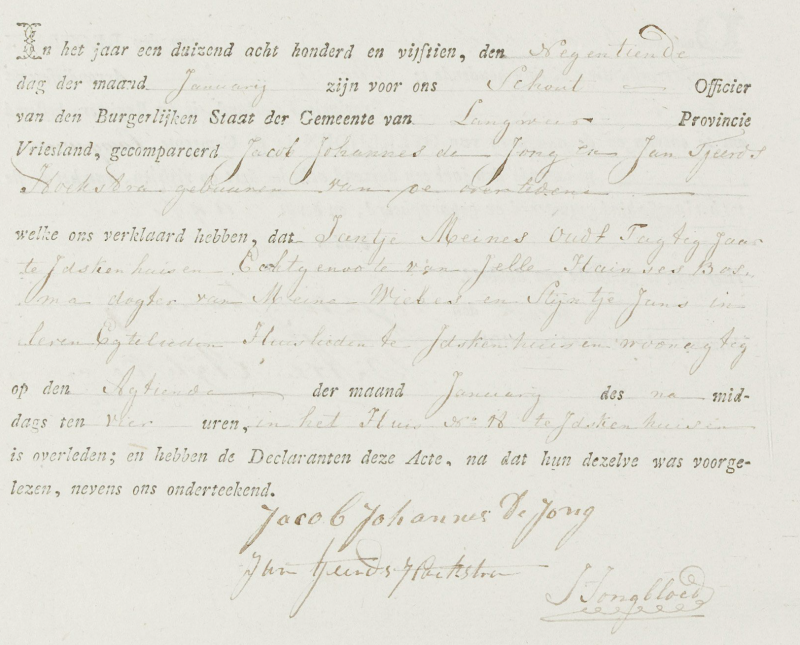 In het jaar een duizend acht honderd en vijftien, den Negentiende
dag der maand Januarij zijn voor ons Schout Officier
van den Burgerlijken Staat der Gemeente van Langweer Provincie
Vriesland, gecompareerd Jacob Johannes de Jong en Jan Tjeerds
Hoekstra gebuuren van de overledene
welke ons verklaard hebben, dat Jantje Meines Oudt Tagtig Jaar
te Idskenhuisen Echtgenoote van Jelle Hainses Bos
ma dogter van Meine Wiebes en Stijntje Jans in
leven Egtelieden Huislieden te Idskenhuisen woonagtig
op den Agtiende der maand Januarij des na mid-
dags ten vier uren, in het Huis No 18 te Idskenhuisen
is overleden; en hebben de Declaranten deze Acte, na dat hun dezelve was voorge-
lezen, nevens ons onderteekend.
Jacob Johannes De Jong
Jan Tjeerds Hoekstra
J Jongbloed